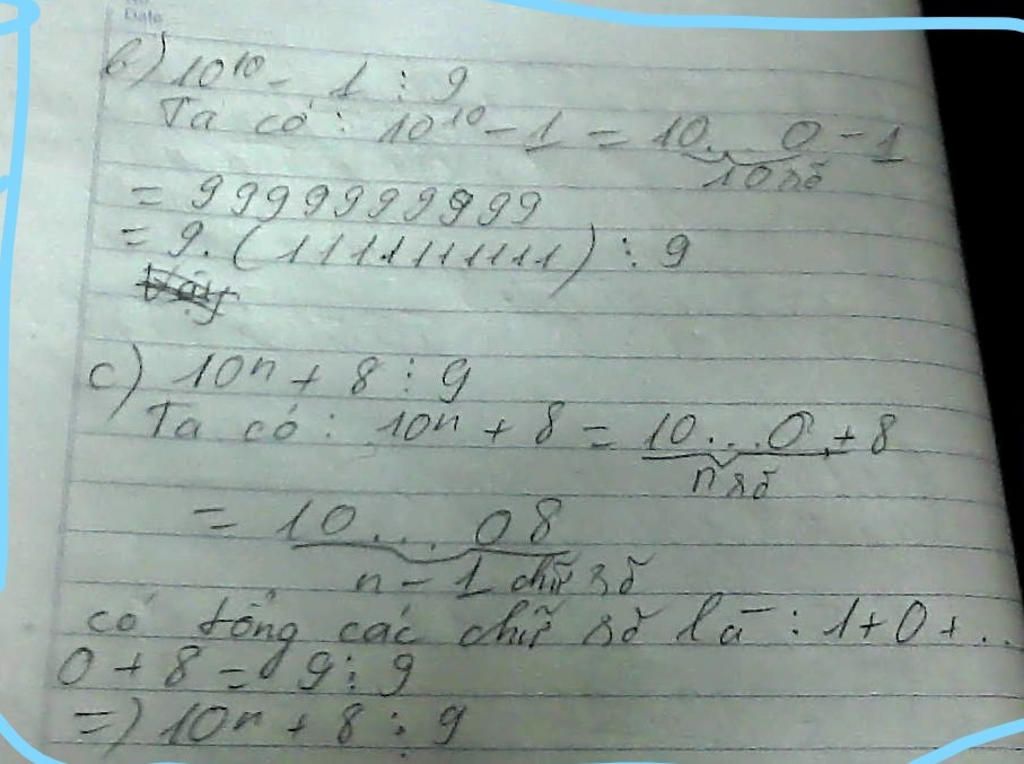 Date
b) 10¹⁰ - 1 ⋮ 9
Ta có : 10¹⁰ - 1 = 10...0 - 1
10 số
= 9999999999
= 9.(1111111111) ⋮ 9
Vậy
c) 10ⁿ + 8 ⋮ 9
Ta có : 10ⁿ + 8 = 10...0 + 8
n số
= 10...08
n - 1 chữ số
có tổng các chữ số là : 1+0+..
0 + 8 = 9 ⋮ 9
=) 10ⁿ + 8 ⋮ 9